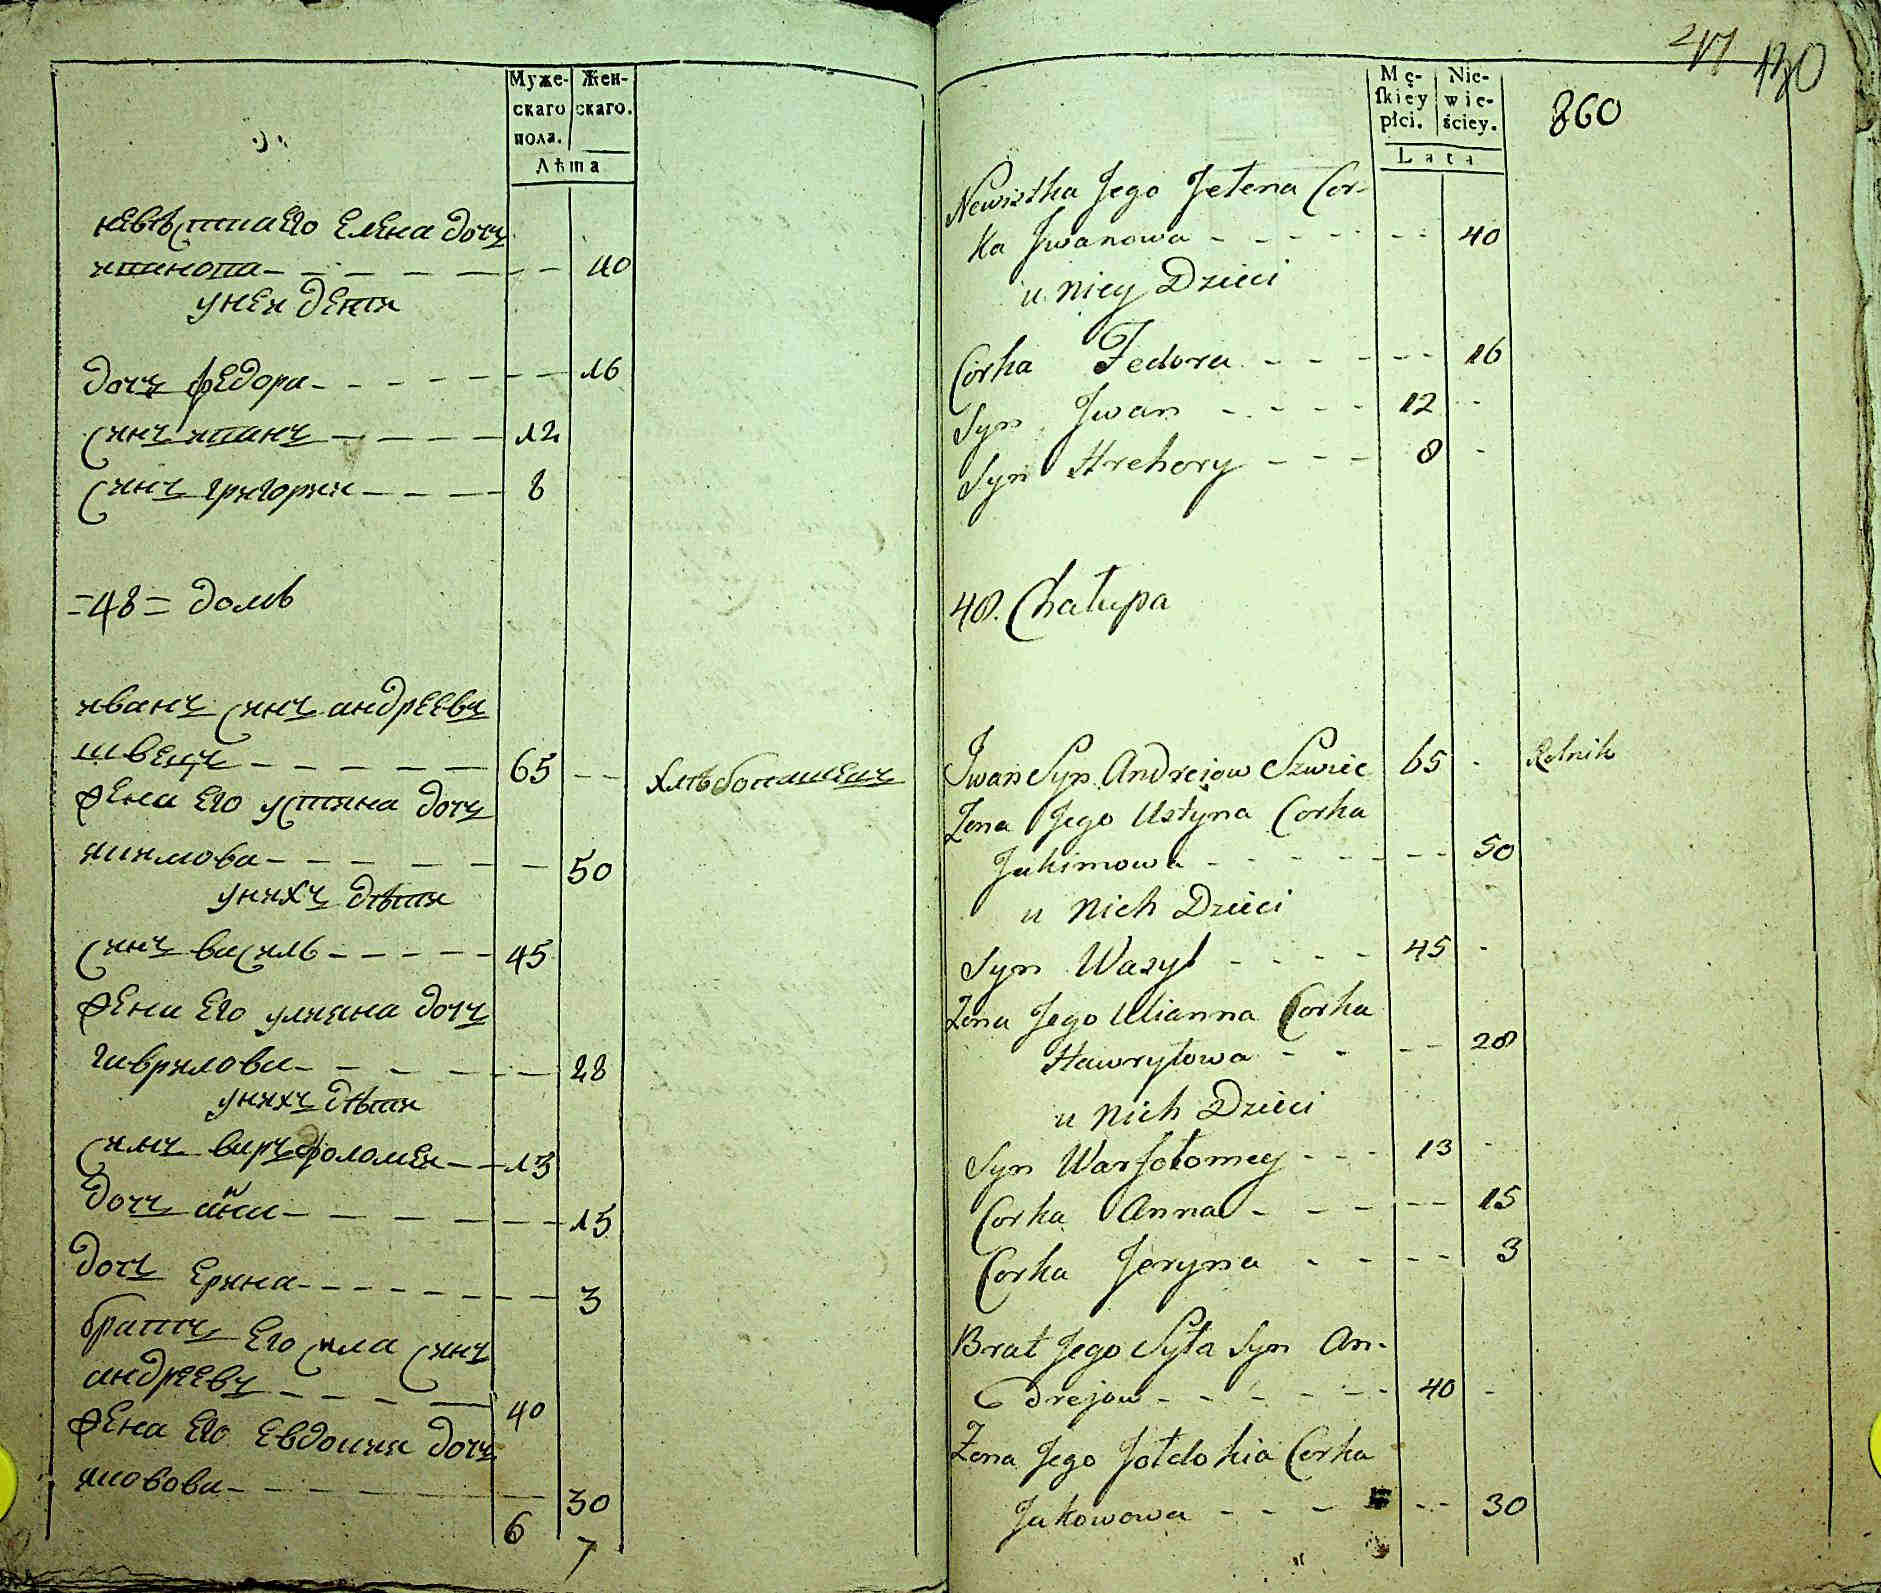 Муже-
скаго
пола.
Жен-
скаго.
Лѣта
невѣстка Его Елена дочъ
иванова 40
у неи дети
дочъ федора 16
синъ иванъ 12
синъ григории 8
=48= домъ
иванъ синъ андреевъ
швецъ 65 хлѣбопашецъ
жена Его устина дочъ
якимова 50
у нихъ дѣти
синъ василь 45
жена Его улияна дочъ
гаврилова 28
у нихъ дѣти
синъ варъфоломеи 13
дочъ анна 15
дочъ Ерина 3
братъ Его сила синъ
андреевъ 40
жена Его Евдокия дочъ
яковова 30
6 7
47 130
860
Mę-
skiey
płci.
Nie-
wie-
ściey.
Lata
Newistka Jego Jełena Cor-
ka Jwanowa 40
u Niey Dzieci
Corka Fedora 16
Syn Jwan 12
Syn Hrehory 8
48. Chałupa
Jwan Syn Andrejow Szwiec 65 Rolnik
Zona Jego Ustyna Corka
Jakimowa 50
u Nich Dzieci
Syn Wasyl 45
Zona Jego Ulianna Corka
Hawryłowa 28
u Nich Dzieci
Syn Warfołomey 13
Corka Anna 15
Corka Jeryna 3
Brat Jego Syła Syn An-
drejow 40
Zona Jego Jołdokia Corka
Jakowowa 30